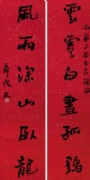 雲霄白晝孤鶴
風雨深山臥龍